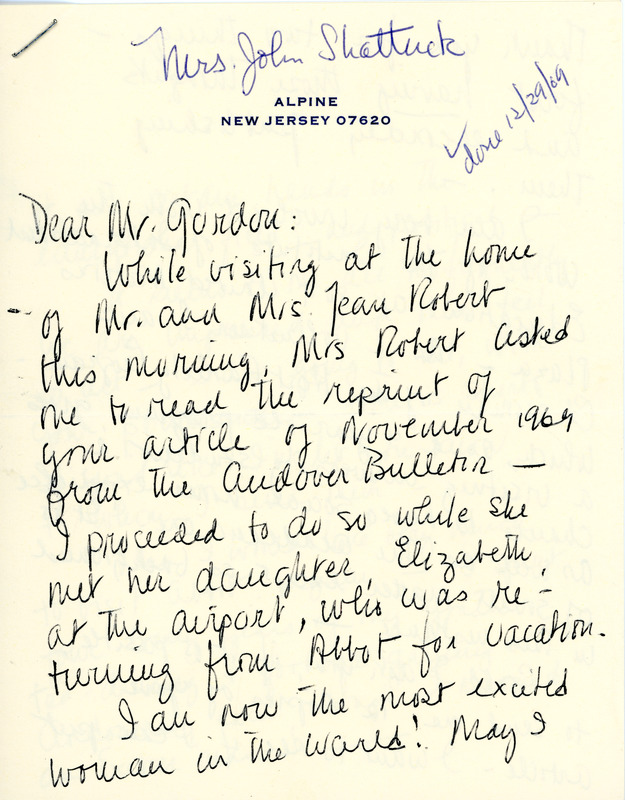 Mrs. John Shattuck
ALPINE
NEW JERSEY 07620
✓ done 12/29/69
Dear Mr. Gordon:
While visiting at the home
of Mr. and Mrs. Jean Robert
this morning, Mrs Robert asked
me to read the reprint of
your article of November 1969
from the Andover Bulletin —
I proceeded to do so while she
met her daughter, Elizabeth,
at the airport, who was re-
turning from Abbot for vacation.
I am now the most excited
woman in the world! May I